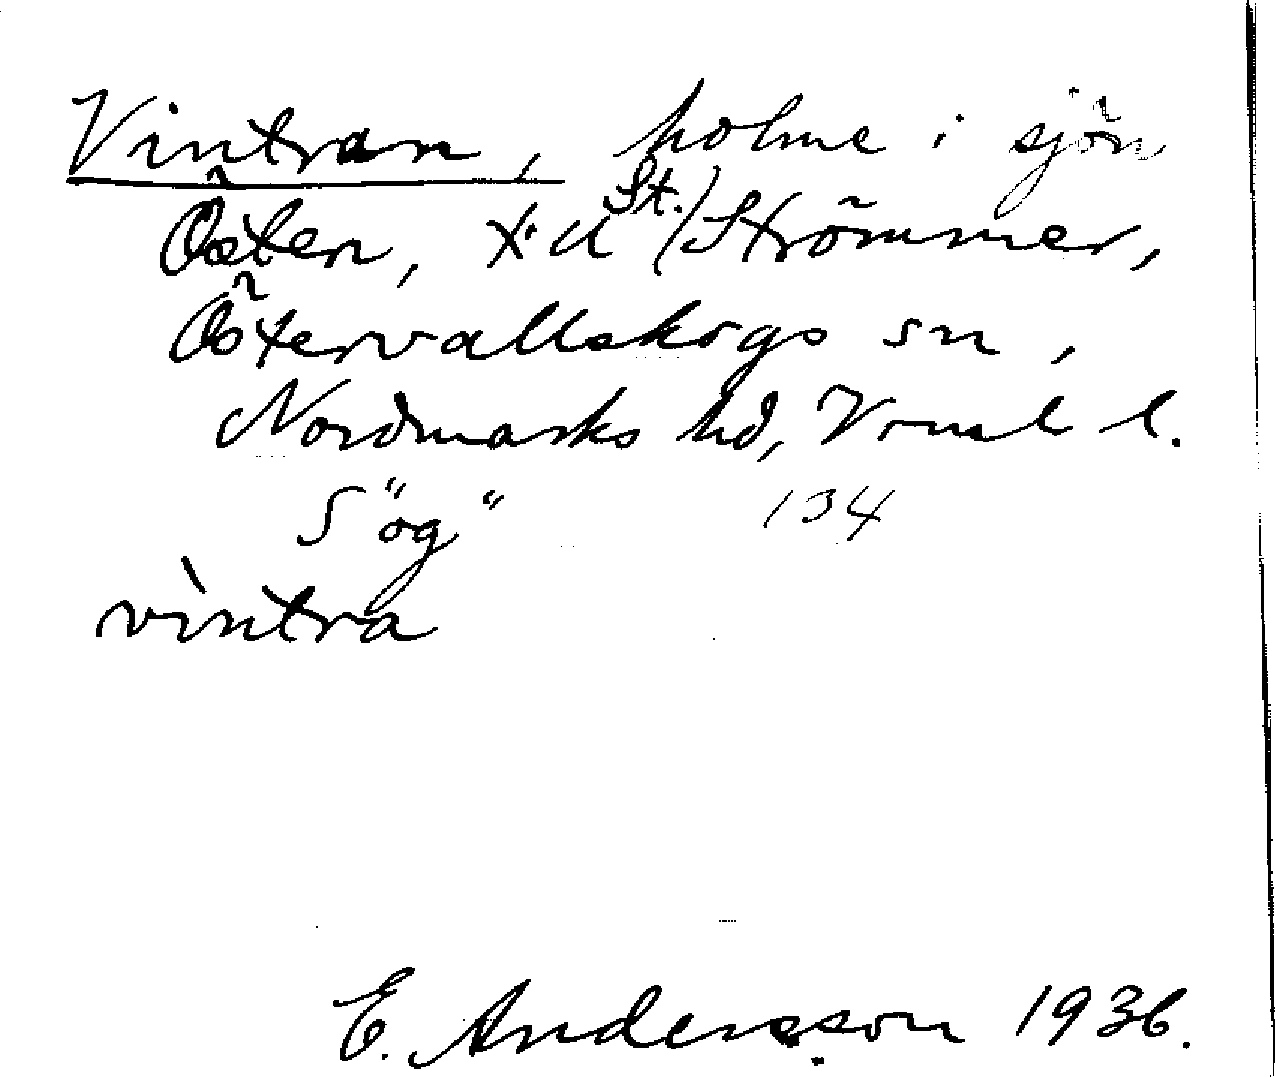 Vintran, holme i sjön
Östen, t.u St. Strömmer,
Östervallskogs sn,
Nordmarks hd, Vrml l.
S "ög" 134
vìntra
E. Andersson 1936.